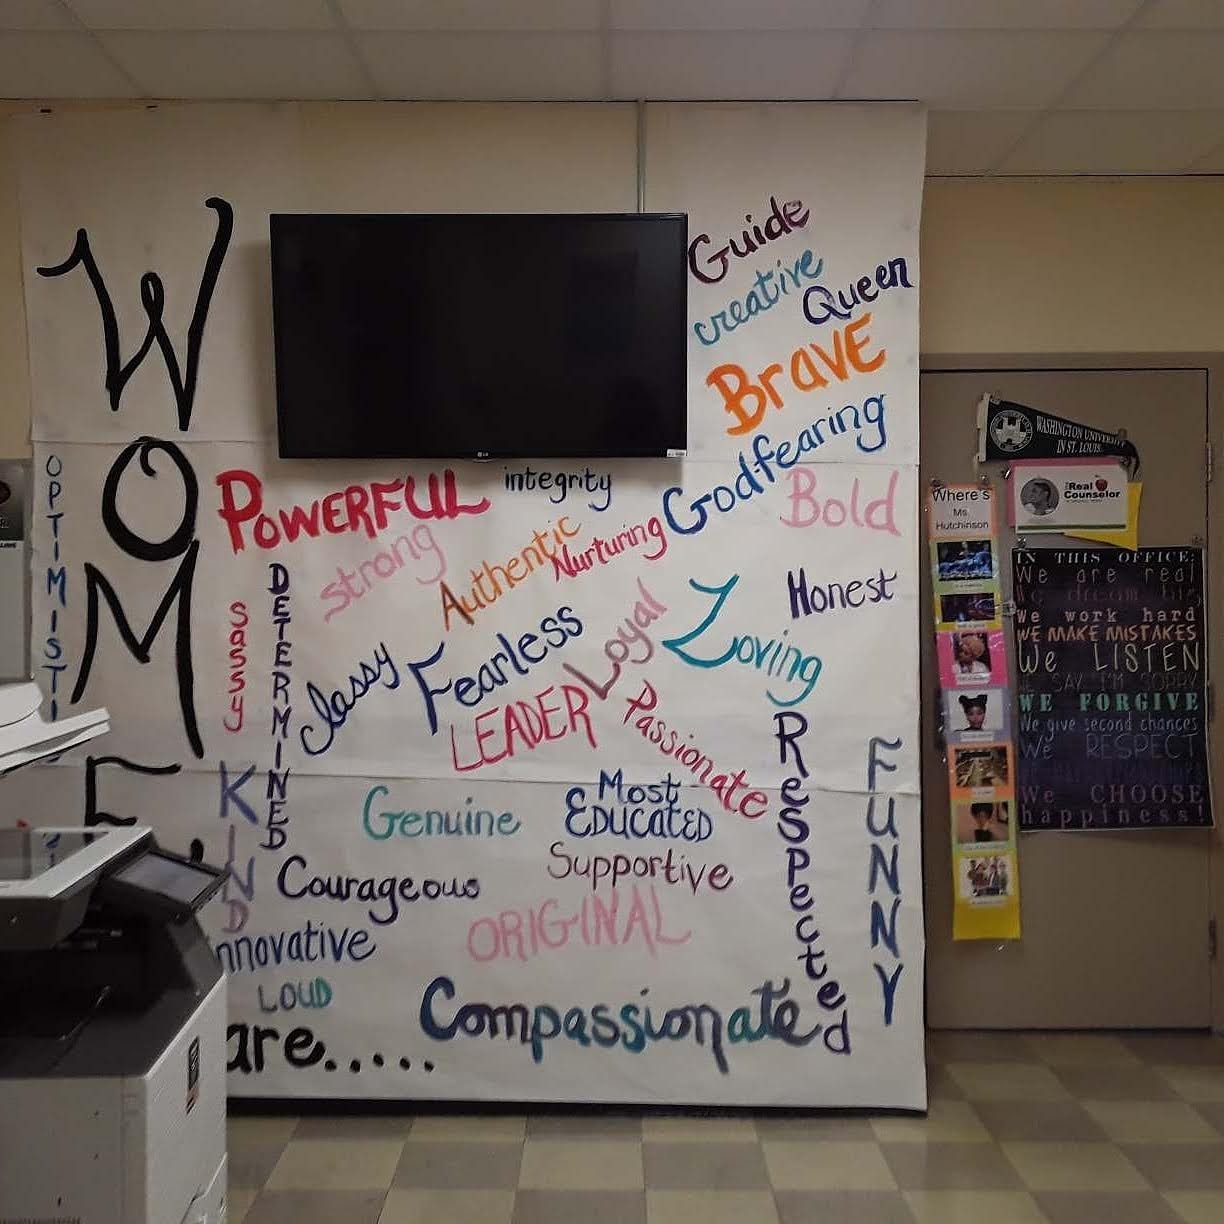 WOME
are.....
OPTIMISTI
Guide
creative
Queen
BRAVE
Godfearing
POWERFUL
integrity
Bold
strong
Authentic
Nurturing
Honest
DETERMINED
sassy
classy
Fearless
Loyal
Loving
LEADER
Passionate
Respected
FUNNY
KIND
Genuine
Most
EDUCATED
Supportive
Courageous
ORIGINAL
nnovative
LOUD
Compassionate
LG
WASHINGTON UNIVERSITY
IN ST. LOUIS
Real
Counselor
Where's
Ms.
Hutchinson
IN THIS OFFICE:
We are real
We dream big
We work hard
WE MAKE MISTAKES
We LISTEN
WE SAY I'M SORRY
WE FORGIVE
We give second chances
We RESPECT
We CHOOSE
happiness!